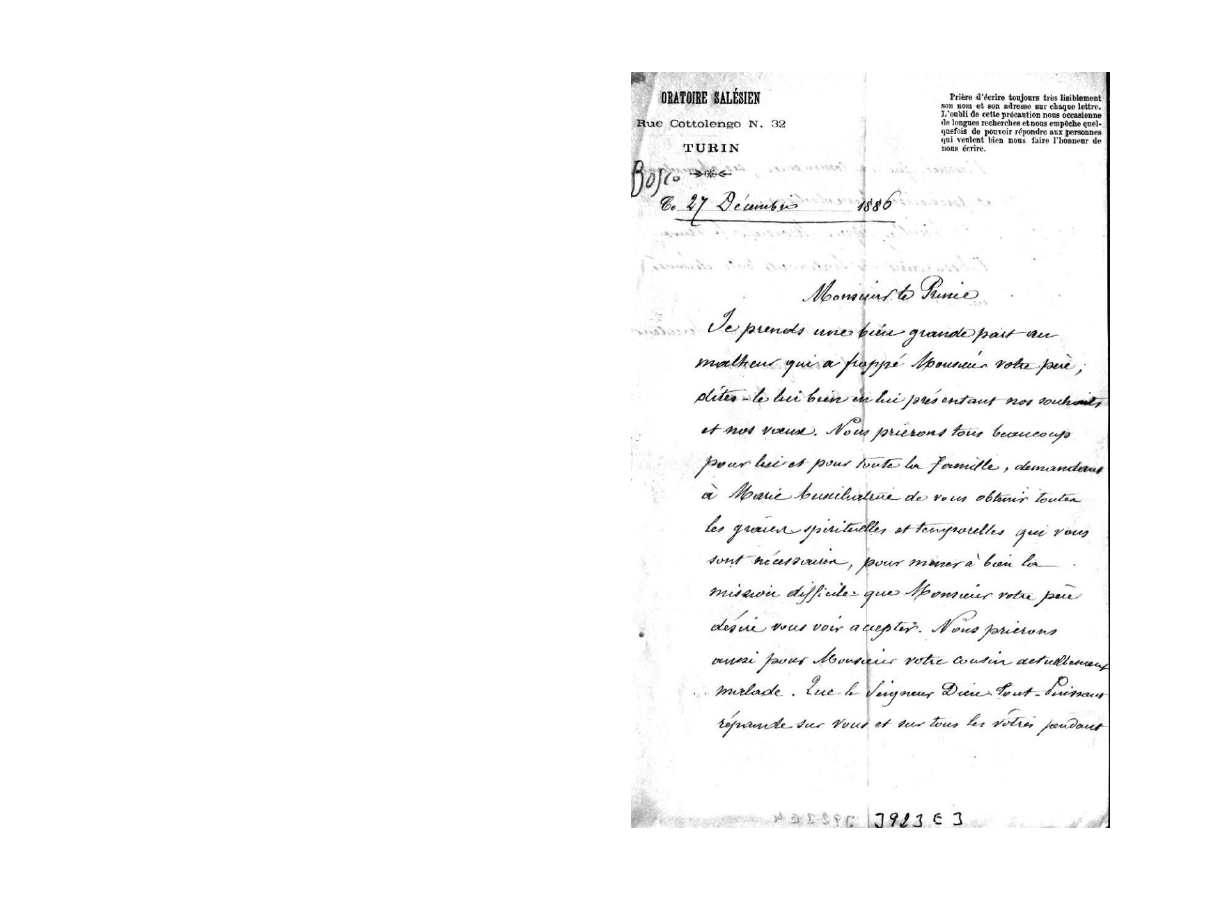 ORATOIRE SALÉSIEN
Rue Cottolengo N. 32
TURIN
Bosco
Le 27 Décembre 1886
Prière d'écrire toujours très lisiblement
son nom et son adresse sur chaque lettre.
L'oubli de cette précaution nous occasionne
de longues recherches et nous empêche quel-
quefois de pouvoir répondre aux personnes
qui veulent bien nous faire l'honneur de
nous écrire.
Monsieur le Prince
Je prends une bien grande part au
malheur qui a frappé Monsieur votre père ;
dites-le lui bien en lui présentant nos souhaits
et nos vœux. Nous prierons tous beaucoup
pour lui et pour toute la famille, demandant
à Marie Auxiliatrice de vous obtenir toutes
les grâces spirituelles et temporelles qui vous
sont nécessaires, pour mener à bien la
mission difficile que Monsieur votre père
désire vous voir accepter. Nous prierons
aussi pour Monsieur votre cousin actuellement
malade. Que le Seigneur Dieu Tout-Puissant
répande sur vous et sur tous les vôtres pendant
3923 E 3